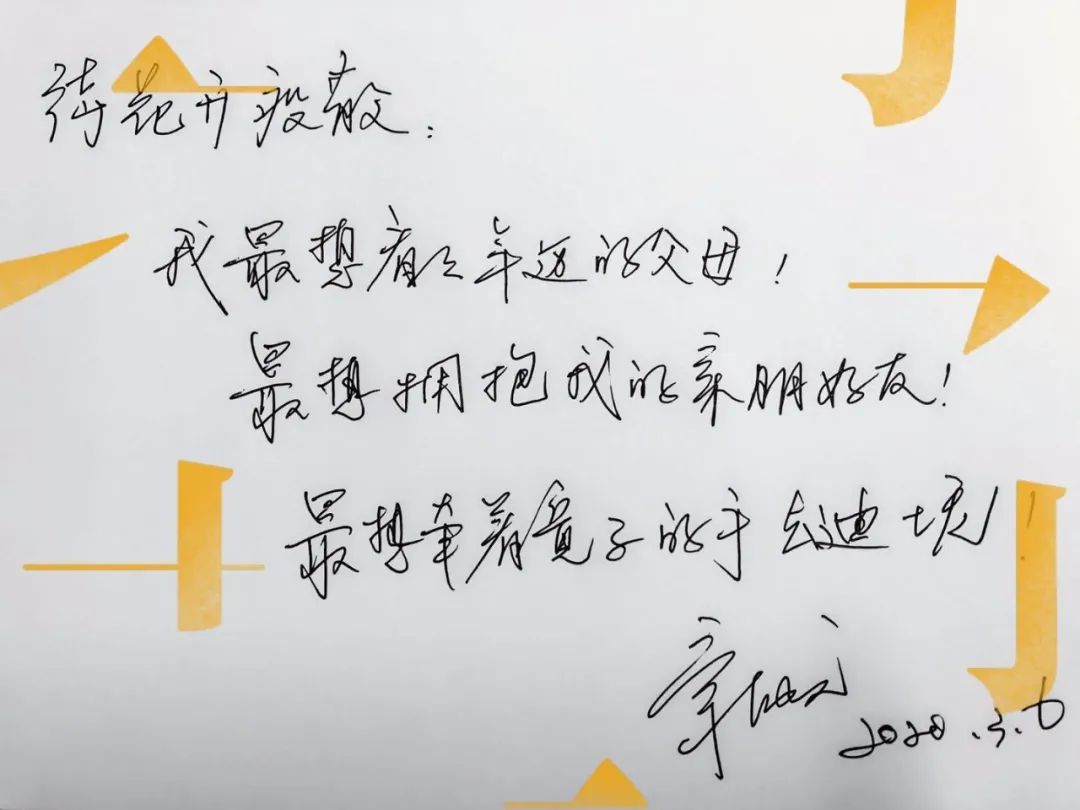 待花开疫散：
我最想看之年迈的父母！
最想拥抱我的亲朋好友！
最想牵着竟子的手去迪士尼！
2020.3.6